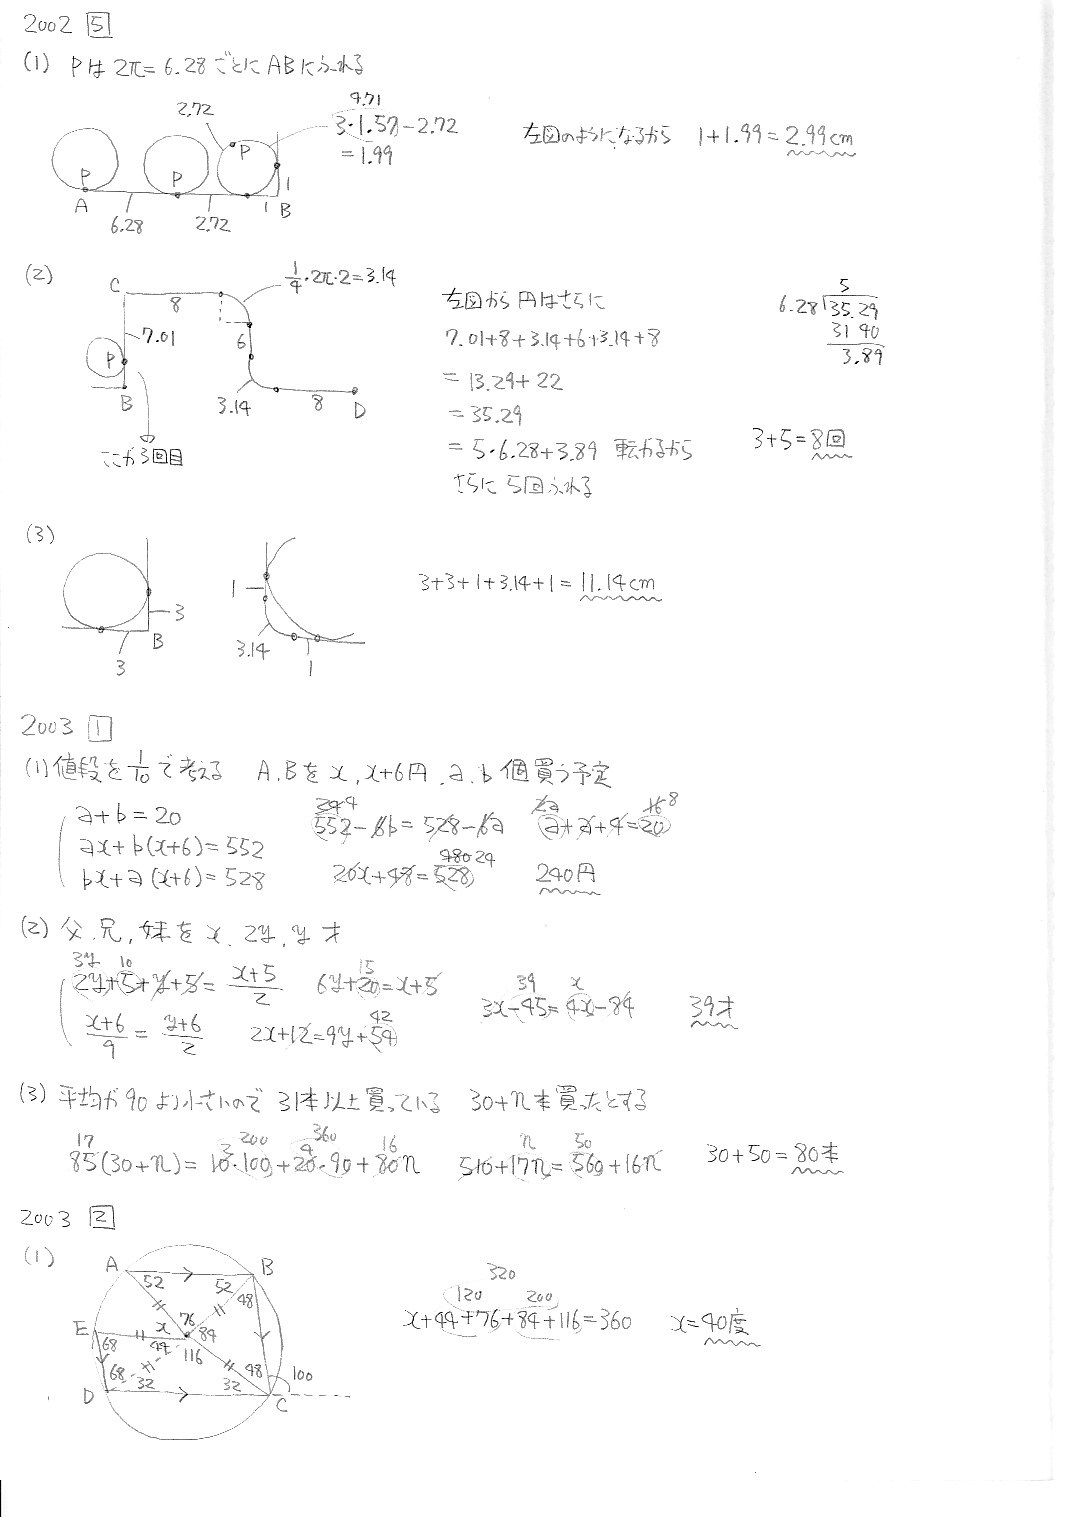 2002 5
(1) Pは2π=6.28ごとにABにふれる
2.72
4.71
3・1.57-2.72
=1.99
左図のようになるから 1+1.99=2.99cm
P P P
A 6.28 2.72 1 B
1
(2)
C 8
1/4・2π・2=3.14
7.01
P
B
6
3.14 8 D
ここが3回目
左図から円はさらに
7.01+8+3.14+6+3.14+8
=13.29+22
=35.29
=5・6.28+3.89 転がるから
さらに5回ふれる
5
6.28 35.29
31 40
3.89
3+5=8回
(3)
3
B
3
1
3.14
1
3+3+1+3.14+1=11.14cm
2003 1
(1) 値段を1/10で考える A,Bをx,x+6円,a,b個買う予定
a+b=20
ax+b(x+6)=552
bx+a(x+6)=528
24 4
552-6b=528-6a
2a 16 8
a+a+4=20
480 24
20x+48=528
240円
(2) 父,兄,妹をx,2y,y才
3y 10
2y+5+y+5=(x+5)/2
15
6y+20=x+5
(x+6)/9=(y+6)/2
42
2x+12=9y+54
39 x
3x-45=4x-84
39才
(3) 平均が90より小さいので31本以上買っている 30+n本買ったとする
17 3 200 4 360 16
85(30+n)=10・100+20・90+80n
n 50
510+17n=560+16n
30+50=80本
2003 2
(1)
A B
52 52 48
E x 76 84
68 44 116
68 48 100
D 32 32 C
320
120 200
x+44+76+84+116=360
x=40度